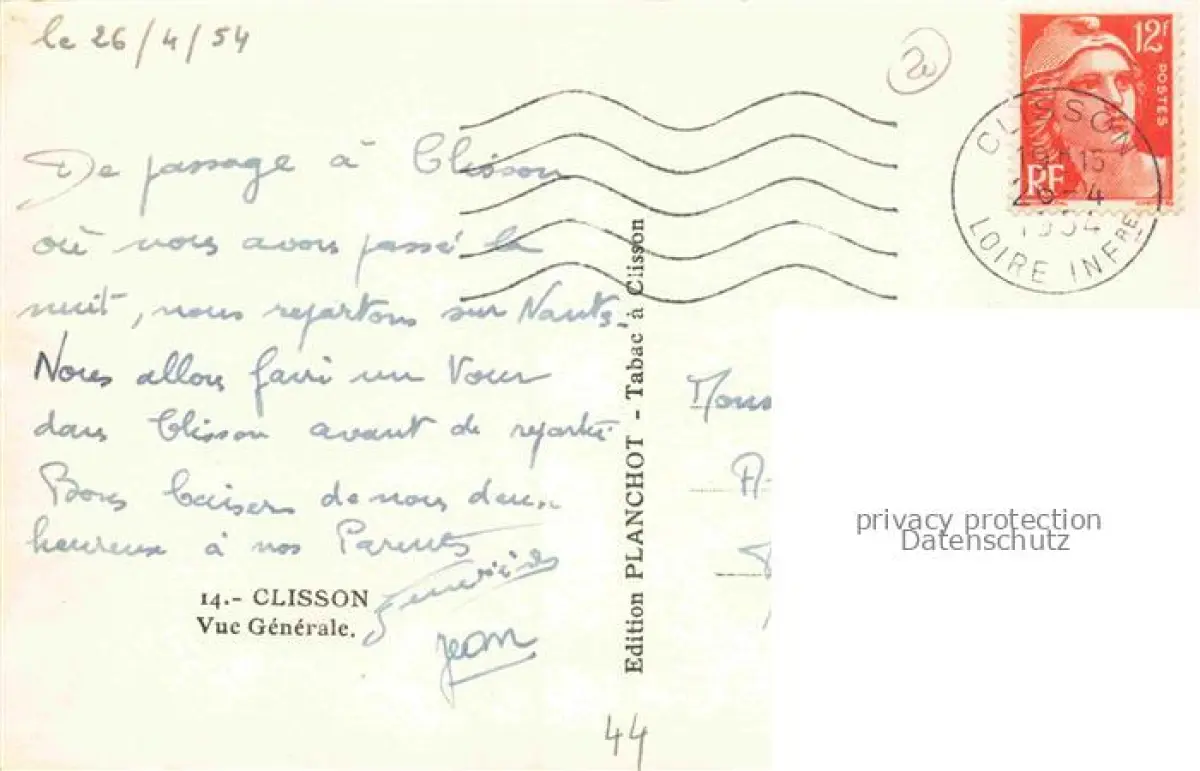 le 26/4/54
20
12f
POSTES
RF
CLISSON
19H15
26-4
1954
LOIRE INFRE
De passage à Clisson
où nous avons passé la
nuit, nous repartons sur Nantes.
Nous allons faire un Tour
dans Clisson avant de repartir
Bons baisers de nous deux
heureux à nos Parents
Jean
14.- CLISSON
Vue Générale.
Edition PLANCHOT - Tabac à Clisson
Mons
A-
privacy protection
Datenschutz
44